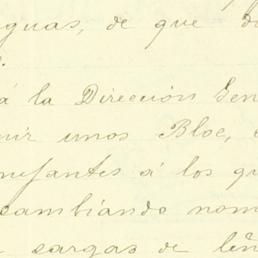 guas, de que d
á la Dirección Gen
nir unos Bloc,
nefantes á los qu
cambiando nom
cargas de leñ